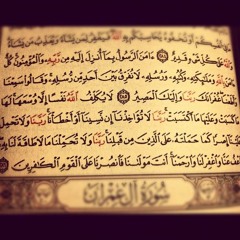 أَنفُسِكُمْ أَوْ تُخْفُوهُ يُحَاسِبْكُم بِهِ اللَّهُ فَيَغْفِرُ لِمَن يَشَاءُ وَيُعَذِّبُ مَن يَشَاءُ
وَاللَّهُ عَلَىٰ كُلِّ شَيْءٍ قَدِيرٌ ٢٨٤ ءَامَنَ الرَّسُولُ بِمَا أُنزِلَ إِلَيْهِ مِن رَّبِّهِ وَالْمُؤْمِنُونَ كُلٌّ
ءَامَنَ بِاللَّهِ وَمَلَٰئِكَتِهِ وَكُتُبِهِ وَرُسُلِهِ لَا نُفَرِّقُ بَيْنَ أَحَدٍ مِّن رُّسُلِهِ وَقَالُوا سَمِعْنَا
وَأَطَعْنَا غُفْرَانَكَ رَبَّنَا وَإِلَيْكَ الْمَصِيرُ ٢٨٥ لَا يُكَلِّفُ اللَّهُ نَفْسًا إِلَّا وُسْعَهَا لَهَا
مَا كَسَبَتْ وَعَلَيْهَا مَا اكْتَسَبَتْ رَبَّنَا لَا تُؤَاخِذْنَا إِن نَّسِينَا أَوْ أَخْطَأْنَا رَبَّنَا وَلَا تَحْمِلْ
عَلَيْنَا إِصْرًا كَمَا حَمَلْتَهُ عَلَى الَّذِينَ مِن قَبْلِنَا رَبَّنَا وَلَا تُحَمِّلْنَا مَا لَا طَاقَةَ لَنَا بِهِ
وَاعْفُ عَنَّا وَاغْفِرْ لَنَا وَارْحَمْنَا أَنتَ مَوْلَىٰنَا فَانصُرْنَا عَلَى الْقَوْمِ الْكَٰفِرِينَ
سُورَةُ آلِ عِمْرَانَ